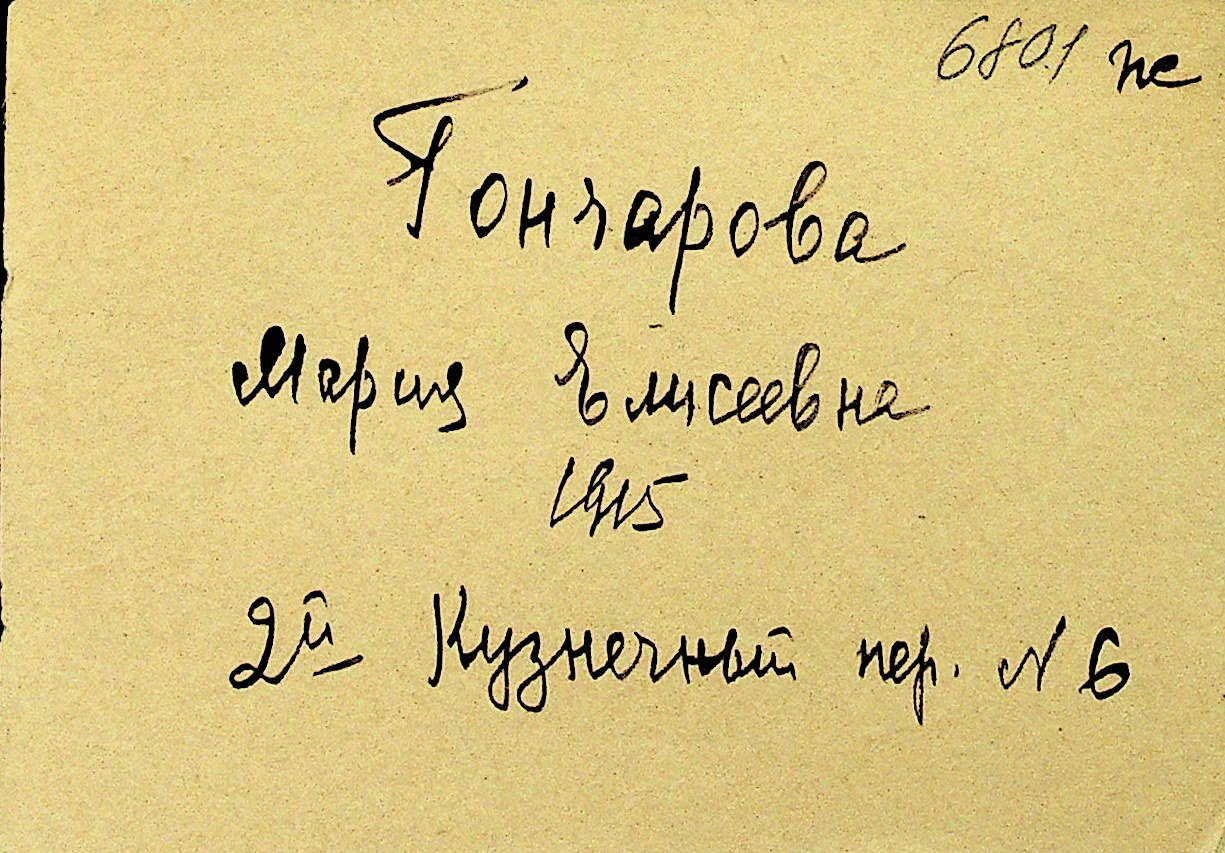 6801 пе
Гончарова
Мария Елисеевна
1915
2й Кузнечный пер. N 6